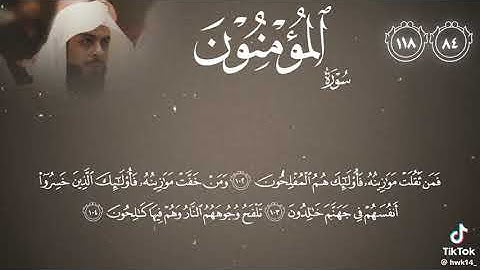 المؤمنون
سورة
٨٤
١١٨
فَمَن ثَقُلَتْ مَوَازِينُهُۥ فَأُو۟لَٰٓئِكَ هُمُ ٱلْمُفْلِحُونَ ١٠٢ وَمَنْ خَفَّتْ مَوَازِينُهُۥ فَأُو۟لَٰٓئِكَ ٱلَّذِينَ خَسِرُوٓا۟
أَنفُسَهُمْ فِى جَهَنَّمَ خَٰلِدُونَ ١٠٣ تَلْفَحُ وُجُوهَهُمُ ٱلنَّارُ وَهُمْ فِيهَا كَٰلِحُونَ ١٠٤
TikTok
@ hwk14_